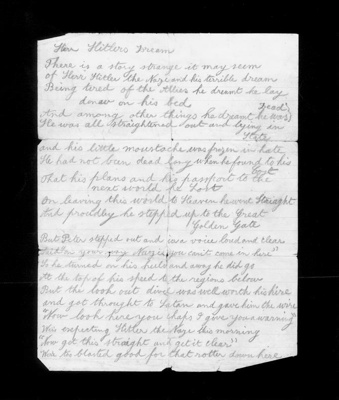 Herr Hitlers Dream
There is a story strange it may seem
of Herr Hitler the Nazi and his terrible dream
Being tired of the Allies he dreamt he lay
down on his bed
And among other things he dreamt he was Dead
He was all straightened out and lying in
State
and his little moustache was frozen in hate
He had not been dead long when he found to his
cost
That his plans and his passport to the
next world
On leaving this world to Heaven he went straight
And proudly he stepped up to the Great
Golden Gate
But Peter stepped out and in a voice loud and clear
you can't come in here"
So he turned on his heel and away he did go
At the top of his speed to the regions below
But the look out was well worth his hire
and got to Satan and gave him the wire
"Now look here you chaps I give you a warning"
We're expecting Hitler the Nazi this morning
"Now get this straight and get it clear"
We're too blasted good for that rotter down here